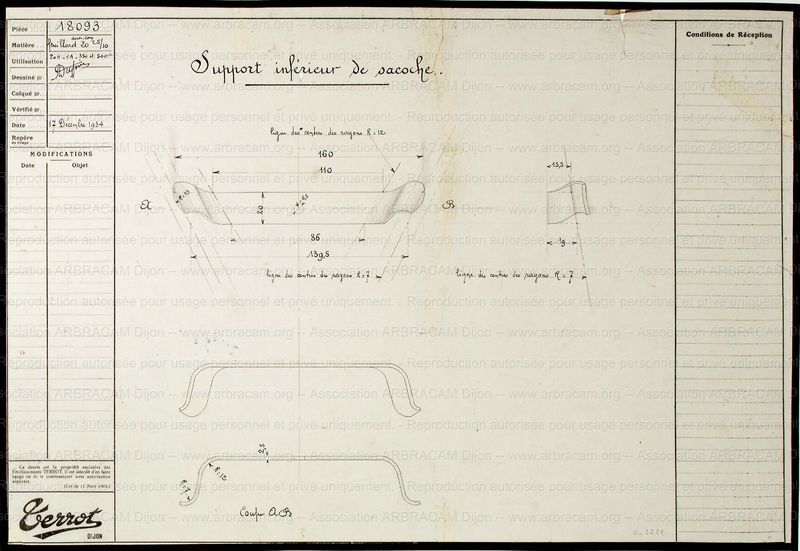 Pièce 18093
Matière feuillard acier doux 20 25/10
Utilisation
Dessiné par
Calqué par
Vérifié par
Date 17 Décembre 1934
Repère
du tirage
MODIFICATIONS
Date Objet
Support inférieur de sacoche.
Conditions de Réception
ligne des centres des rayons R=12
160
110
15,5
A
R=12
20
B
86
139,5
19
ligne des centres des rayons R=7
ligne des centres des rayons R=7
2,5
R=12
R=7
Coupe AB
Ce dessin est la propriété exclusive des
Établissements TERROT. Il est interdit d'en faire
usage ou de le communiquer sans autorisation
expresse.
Terrot
DIJON
Association ARBRACAM Dijon -- www.arbracam.org
Reproduction autorisée pour usage personnel et privé uniquement.